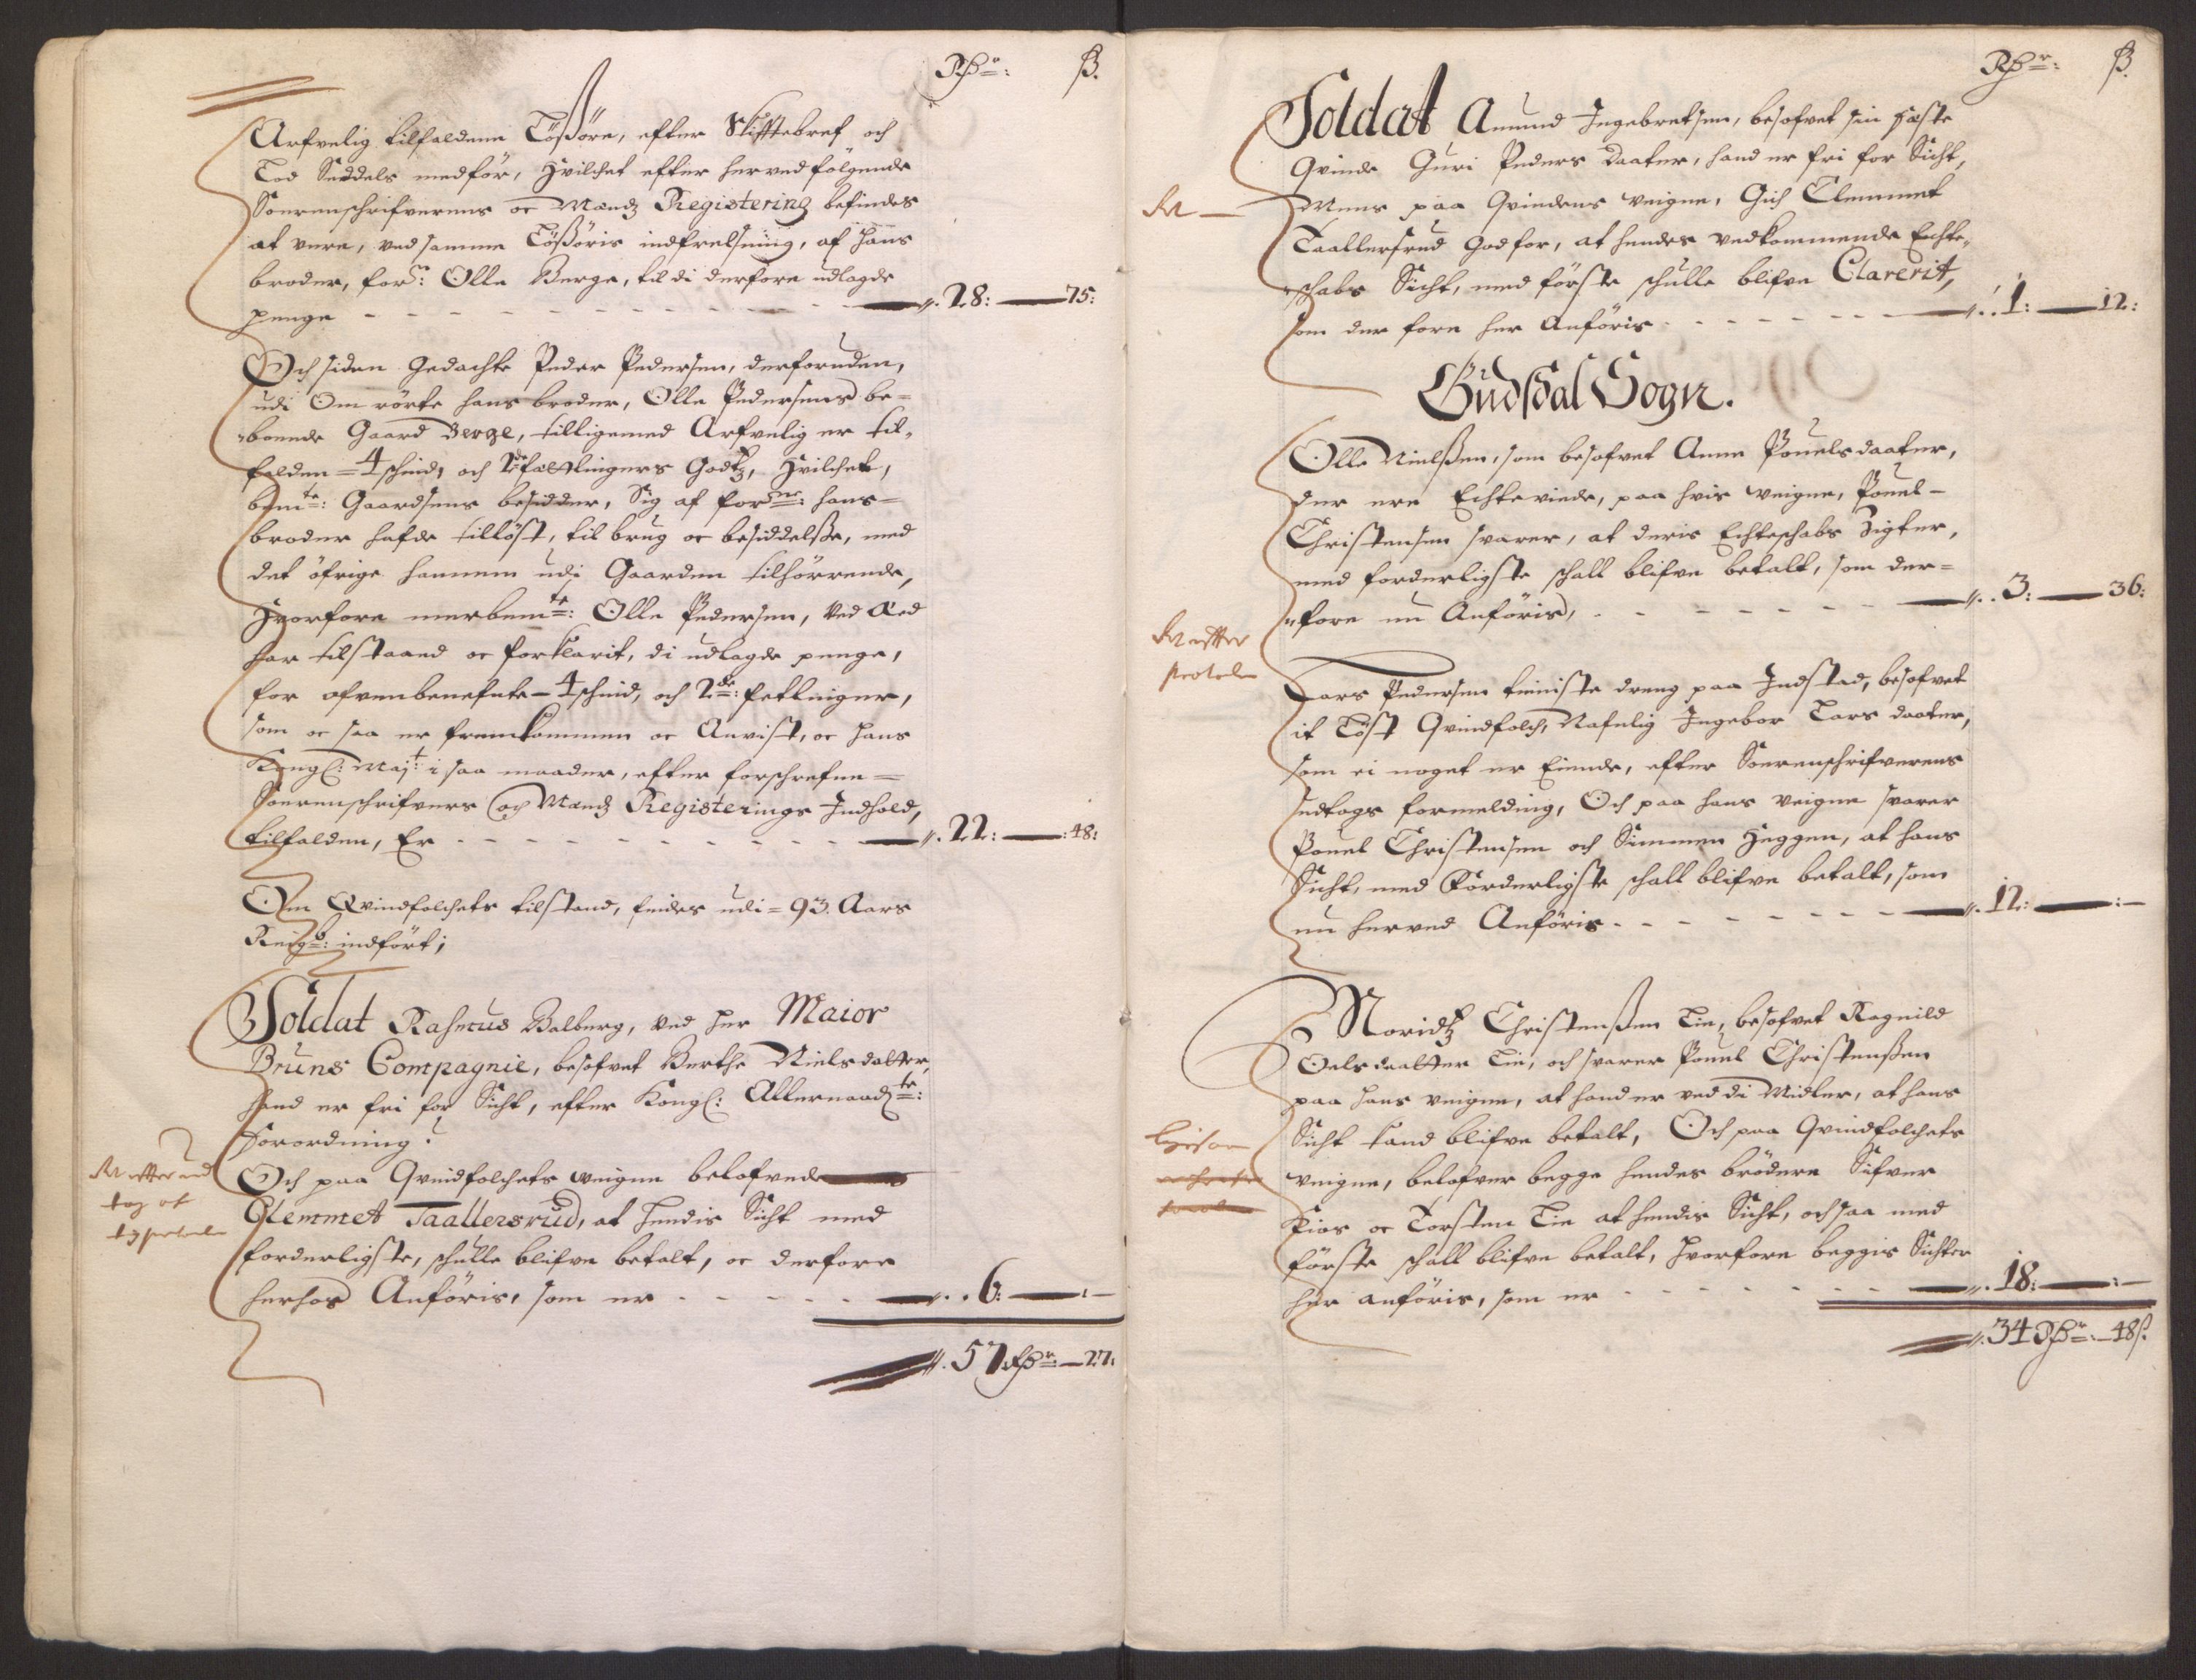 Rhdr: ß.
Arfvelig tilfaldene Lößöre, efter Skifftebref och
Lod Seddels medför, hvilchet efter herved fölgende
Sorenschrifverens oc Mænds Registering befindes
at vere, ved samme Lößöris indfrelsning, af hans
broder, forne: Olle Berge, til di derfore udlagde
penge - - - 28: — 75:
Och siden gedachte Peder Pedersen, derforuden,
udi Om rörte hans broder, Olle Pedersens be-
boende Gaard Berge, tilligemed Arfvelig er til-
falden = 4 schind, och 2de fættlingers Godtz, hvilchet,
bemte: Gaardsens besidder, Sig af forne: hans-
broder hafde tillöst, til brug oc besiddelße, med
det öfrige hannem udi Gaarden tilhörrende,
hvorfore merbemte: Olle Pedersen, ved Æed
har tilstaaed oc forklarit, di udlagde penge,
for ofvenbenefnte - 4 schind, och 2de: fetlinger,
som oc saa er fremkommen oc Anvist, oc hans
Kongl: Majt: i saa maader, efter forschrefne =
Sorenschrifvers och Mænds Registerings Indhold,
tilfalden, Er - - - 22: — 48:
Om Qvindfolchets tilstand, findes udi = 93. Aars
Regnb: indfört;
Soldat Rasmus Balberg, ved her Maior
Bruns Compagnie, besofvet Berthe Nielsdatter,
hand er fri for Sicht, efter Kongl: Allernaadste:
forordning:
Och paa Qvindfolchets veigne belofvede
Clemmet Taallersrud, at hendis Sicht med
forderligste, schulle blifve betalt, oc derfore
herhos Anföris, som er - - - 6: —
57 Rhdr: — 27:
Rhdr: ß.
Soldat Amund Ingebretsen, besofvet sin feste
Qvinde Guri Peders daater, hand er fri for Sicht,
Mens paa Qvindens veigne, Gich Clemmet
Taallersrud God for, at hendes vedkommende Echte-
schabs Sicht, med förste schulle blifve Clarerit,
som der fore her Anföris - - - 1: — 12:
Gudsdal Sogn.
Olle Nielßen, som besofvet Anne Pouelsdaater,
der ere Echteviede, paa hvis veigne, Pouel-
Christensen svarer, at deris Echteschabs Sigter,
med forderligste schall blifve betalt, som der-
fore nu Anföris, - - - 3: — 36:
Lars Pedersen tieniste dreng paa Indstad, besofvet
it Löst Qvindfolch, Nafnlig Ingebor Lars daater,
som ei noget er Eiende, efter Sorenschrifverens
udtogs formelding, Och paa hans veigne svarer
Pouel Christensen och Simmen Heggen, at hans
Sicht, med Forderligste schall blifve betalt, som
nu herved Anföris - - - 12: —
Moridtz Christenßen Lie, besofvet Ragnild
Oelsdaatter Lie, och svarer Pouel Christenßen
paa hans veigne, at hand er ved di Midler, at hans
Sicht kand blifve betalt, Och paa Qvindfolchets
veigne, belofver begge hendes brödere Sifver
Kios oc Torsten Lie at hendis Sicht, och saa med
förste schall blifve betalt, hvorfore beggis Sichter
her anföris, som er - - - 18: —
34 Rhdr: — 48 ß.